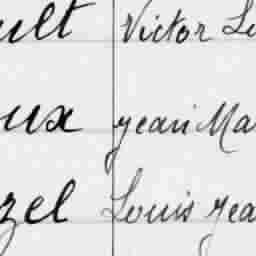 ult Victor Lo
ux Jean Ma
zel Louis Jea